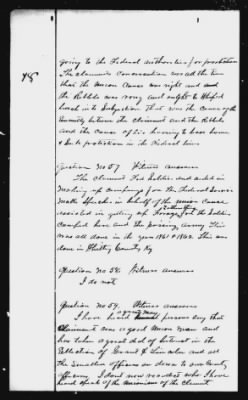 going to the Federal authorities for protection
The claimants Conversation was all the time
that the Union Cause was right and
the Rebble was rong and ought to be whiped
back into Subjection That was the cause of the
between the claiment and the Rebble
and the cause of his having to leave home
& Seek protection in the Federal lines
48
Question No 57 Witness answers
The claiment Fed Soldier and aided in
making up companys for the Federal Service
made Speeches in behalf of the union cause
assisted in getting up Forage for the Soldier
and the army This
was all done in the year 1861 & 1862 This was
done in Whitley County Ky
Question No 58. Witness answers
I do not
Question No 59. Witness answers
I have heard a great many persons Say that
Claiment was a good Union man and
has taken a good deal of interest in the
Election of Grant & Lincoln and all
the smaller officers on down to our County
officers. I dont now who I have
heard speak of the Unionism of the Claiment